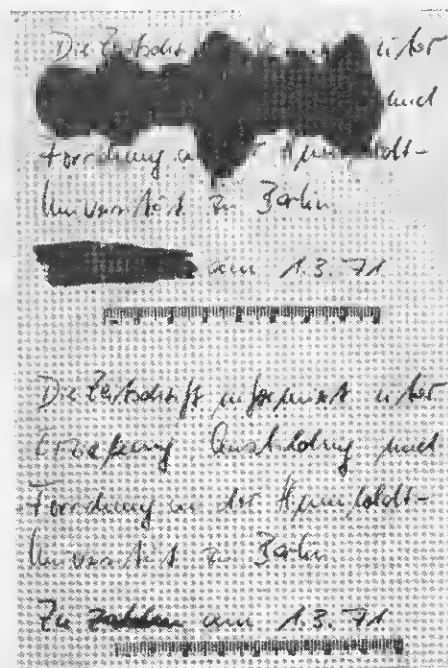 Die über
und
Forschung Humboldt-
Universität zu Berlin
am 1.3.71
Die Zeitschrift informiert über
Erziehung, Ausbildung und
Forschung an der Humboldt-
Universität zu Berlin
Zu zahlen am 1.3.71